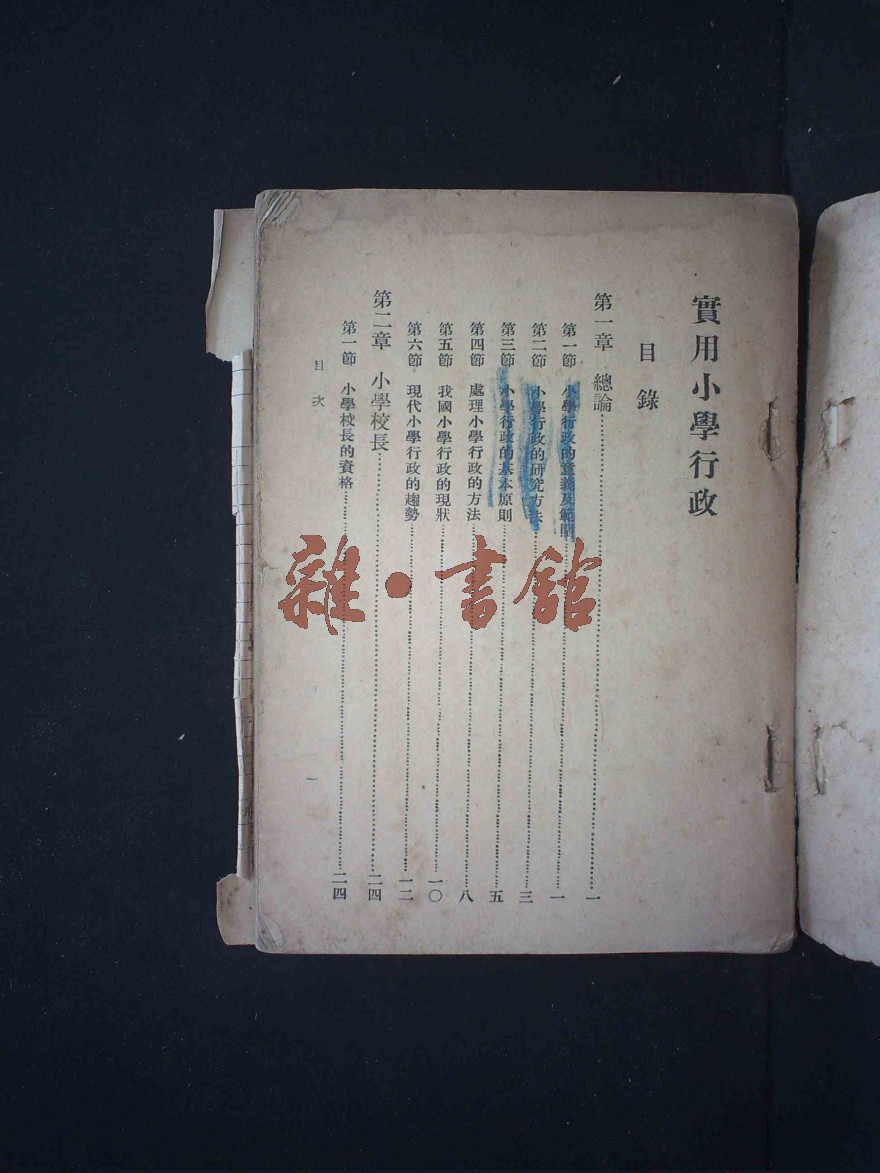 實用小學行政
目錄
第一章　總論……一
第一節　小學行政的意義及範圍……一
第二節　小學行政的研究方法……三
第三節　小學行政的基本原則……五
第四節　處理小學行政的方法……八
第五節　我國小學行政的現狀……一〇
第六節　現代小學行政的趨勢……一二
第二章　小學校長……二四
第一節　小學校長的資格……二四
目次
一
雜·書館